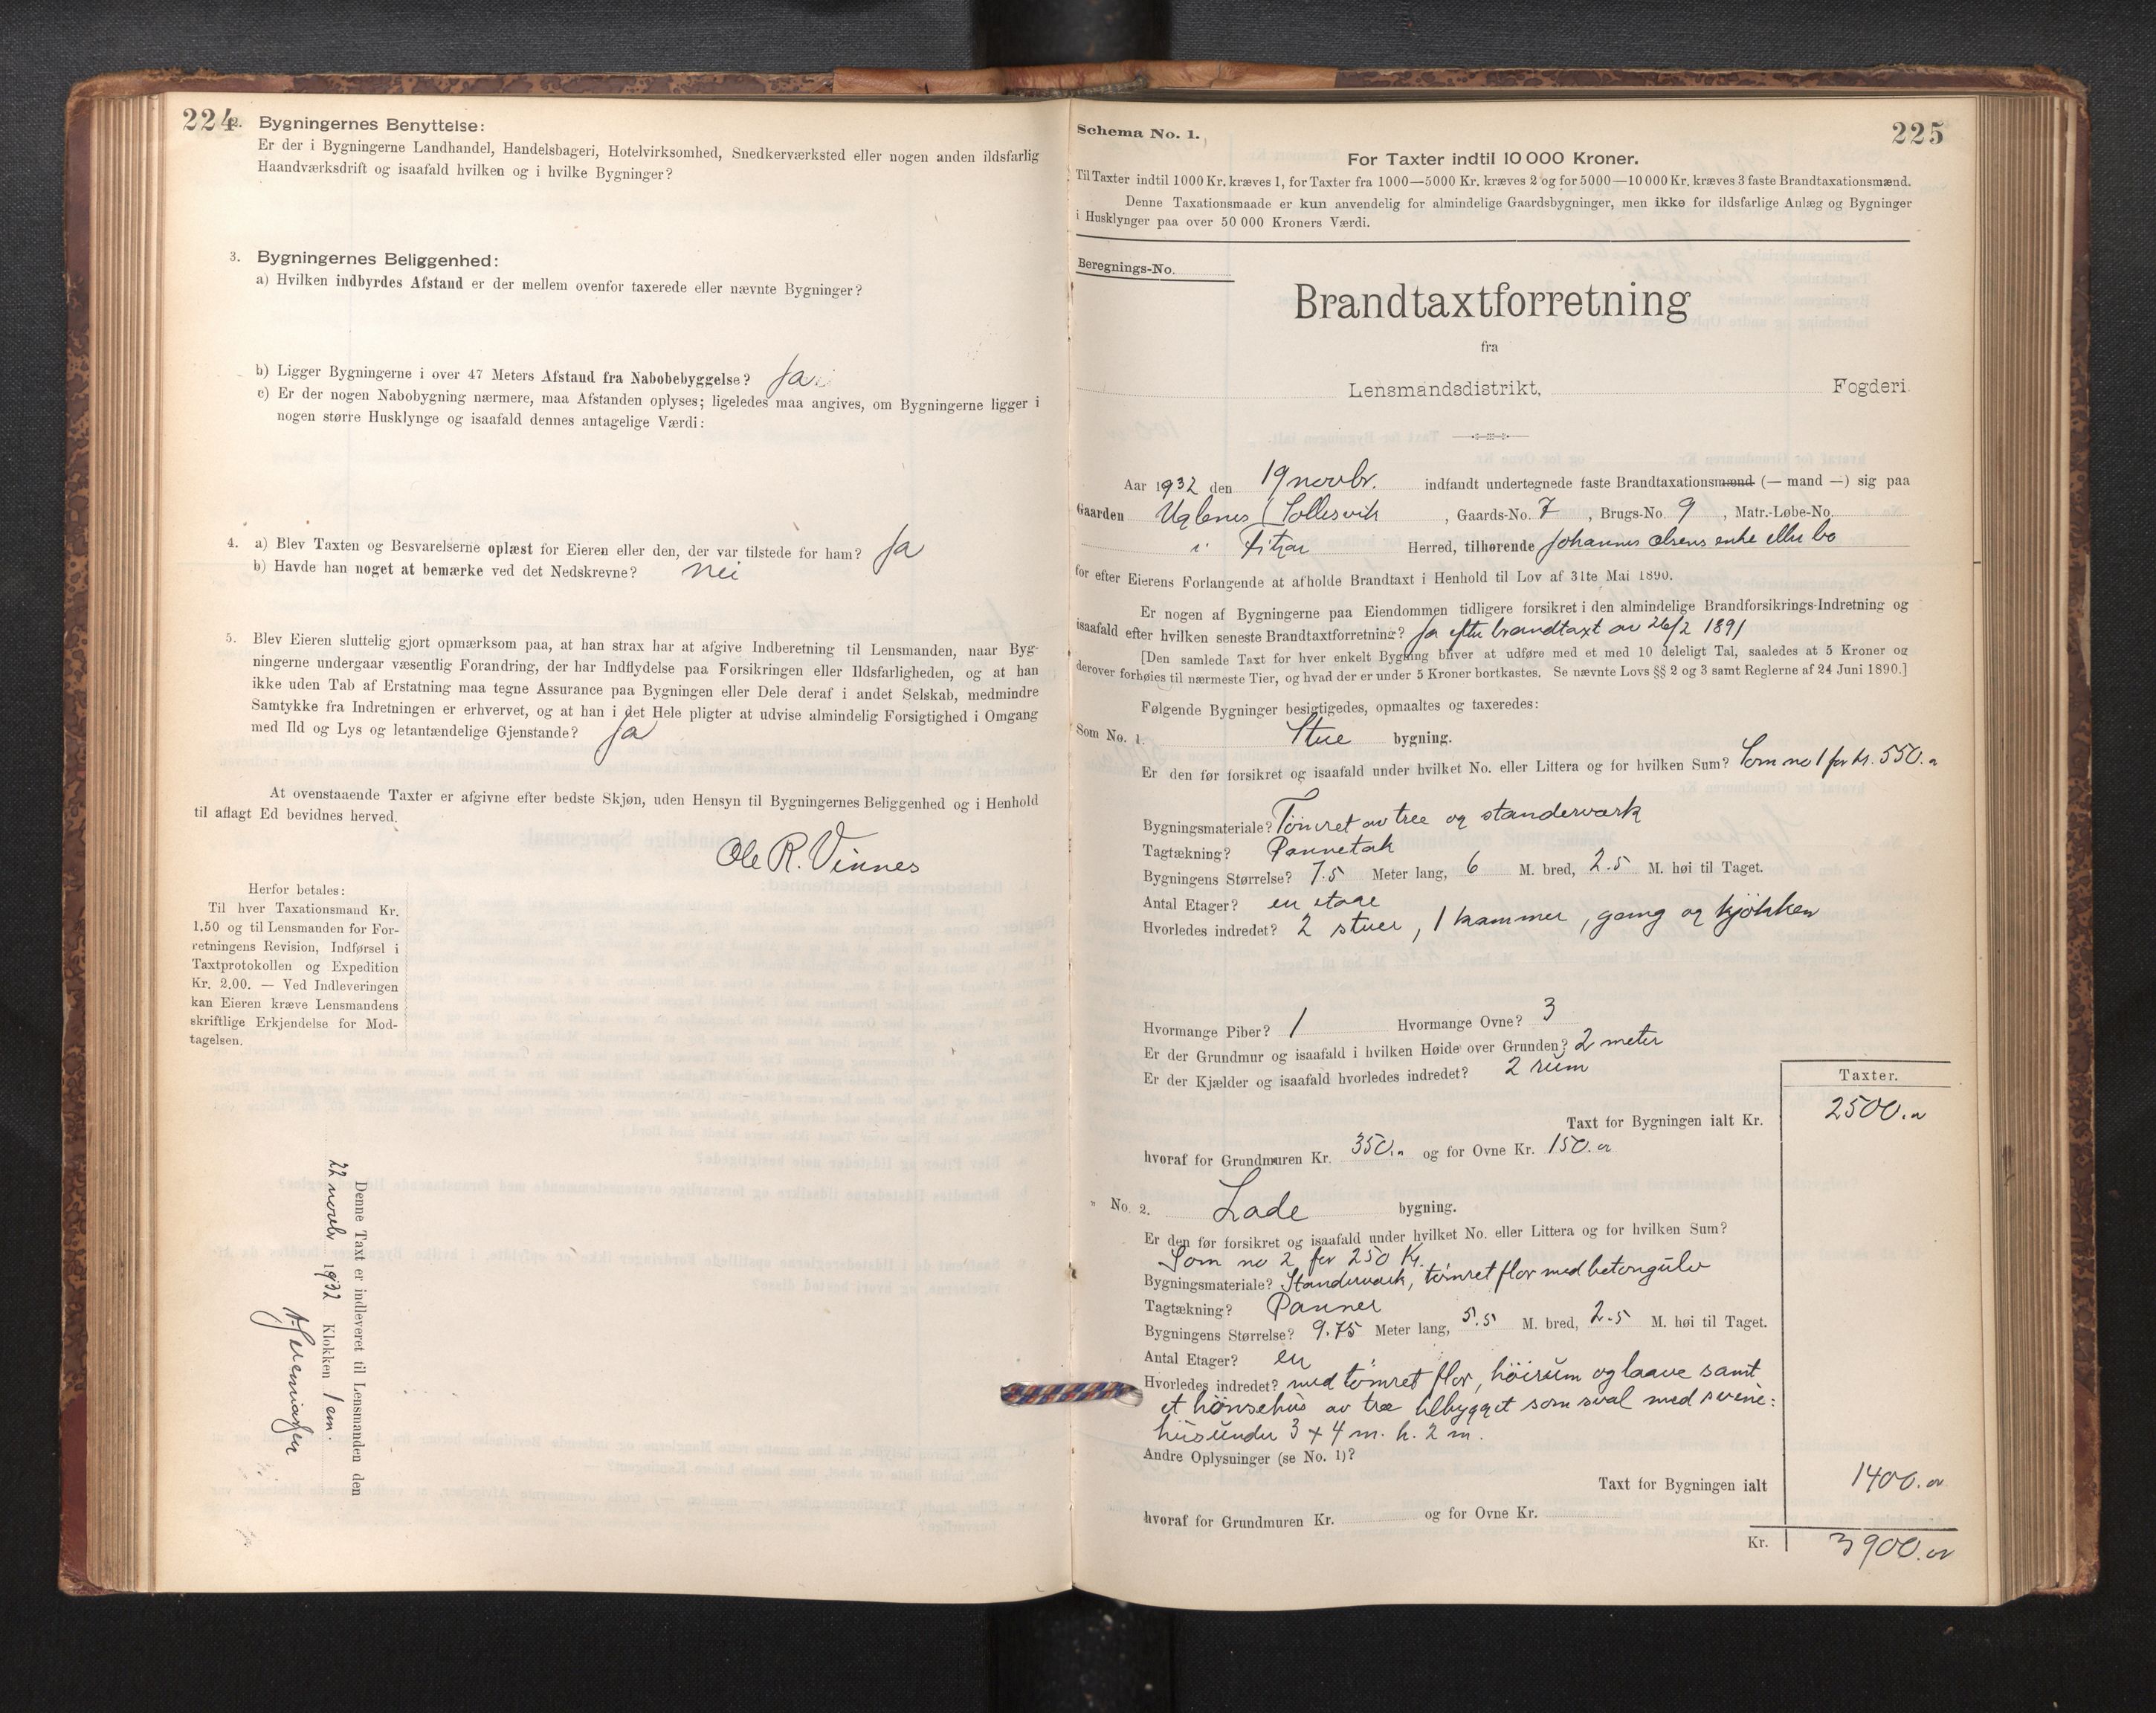 224
2. Bygningernes Benyttelse:
Er der i Bygningerne Landhandel, Handelsbageri, Hotelvirksomhed, Snedkerværksted eller nogen anden ildsfarlig
Haandværksdrift og isaafald hvilken og i hvilke Bygninger?
3. Bygningernes Beliggenhed:
a) Hvilken indbyrdes Afstand er der mellem ovenfor taxerede eller nævnte Bygninger?
b) Ligger Bygningerne i over 47 Meters Afstand fra Nabobebyggelse? Ja
c) Er der nogen Nabobygning nærmere, maa Afstanden oplyses; ligeledes maa angives, om Bygningerne ligger i
nogen større Husklynge og isaafald dennes antagelige Værdi:
4. a) Blev Taxten og Besvarelserne oplæst for Eieren eller den, der var tilstede for ham? Ja
b) Havde han noget at bemærke ved det Nedskrevne? Nei
5. Blev Eieren sluttelig gjort opmærksom paa, at han strax har at afgive Indberetning til Lensmanden, naar Byg-
ningerne undergaar væsentlig Forandring, der har Indflydelse paa Forsikringen eller Ildsfarligheden, og at han
ikke uden Tab af Erstatning maa tegne Assurance paa Bygningen eller Dele deraf i andet Selskab, medmindre
Samtykke fra Indretningen er erhvervet, og at han i det Hele pligter at udvise almindelig Forsigtighed i Omgang
med Ild og Lys og letantændelige Gjenstande? Ja
At ovenstaaende Taxter er afgivne efter bedste Skjøn, uden Hensyn til Bygningernes Beliggenhed og i Henhold
til aflagt Ed bevidnes herved.
Ole R. Vinnes
Herfor betales:
Til hver Taxationsmand Kr.
1.50 og til Lensmanden for For-
retningens Revision, Indførsel i
Taxtprotokollen og Expedition
Kr. 2.00. — Ved Indleveringen
kan Eieren kræve Lensmandens
skriftlige Erkjendelse for Mod-
tagelsen.
Denne Taxt er indleveret til Lensmanden den
22 novbr 1932 Klokken 1 em.
225
Schema No. 1.
For Taxter indtil 10 000 Kroner.
Til Taxter indtil 1000 Kr. kræves 1, for Taxter fra 1000—5000 Kr. kræves 2 og for 5000—10 000 Kr. kræves 3 faste Brandtaxationsmænd.
Denne Taxationsmaade er kun anvendelig for almindelige Gaardsbygninger, men ikke for ildsfarlige Anlæg og Bygninger
i Husklynger paa over 50 000 Kroners Værdi.
Beregnings-No.
Brandtaxtforretning
fra
Lensmandsdistrikt, Fogderi
Aar 1932 den 19 novbr. indfandt undertegnede faste Brandtaxationsmænd (— mand —) sig paa
Gaarden Uglenes (Sollesvik , Gaards-No. 7 , Brugs-No. 9 , Matr.-Løbe-No.
i Fitjar Herred, tilhørende Johannes Olsens enke eller bo
for efter Eierens Forlangende at afholde Brandtaxt i Henhold til Lov af 31te Mai 1890.
Er nogen af Bygningerne paa Eiendommen tidligere forsikret i den almindelige Brandforsikrings-Indretning og
isaafald efter hvilken seneste Brandtaxtforretning? Ja efter brandtaxt av 26/2 1891
[Den samlede Taxt for hver enkelt Bygning bliver at udføre med et med 10 deleligt Tal, saaledes at 5 Kroner og
derover forhøies til nærmeste Tier, og hvad der er under 5 Kroner bortkastes. Se nævnte Lovs §§ 2 og 3 samt Reglerne af 24 Juni 1890.]
Følgende Bygninger besigtigedes, opmaaltes og taxeredes:
Som No. 1. Stue bygning.
Er den før forsikret og isaafald under hvilket No. eller Littera og for hvilken Sum? Som no 1 for kr. 550.
Bygningsmateriale? Tömret av tree og standerværk
Tagtækning? Pannetak
Bygningens Størrelse? 7.5 Meter lang, 6 M. bred, 2.5 M. høi til Taget.
Antal Etager? en etage
Hvorledes indredet? 2 stuer, 1 kammer, gang og kjökken
Hvormange Piber? 1 Hvormange Ovne? 3
Er der Grundmur og isaafald i hvilken Høide over Grunden? 2 meter
Er der Kjælder og isaafald hvorledes indredet? 2 rum
Taxter.
Taxt for Bygningen ialt Kr. 2500.
hvoraf for Grundmuren Kr. 350. og for Ovne Kr. 150.
" No. 2. Lade bygning.
Er den før forsikret og isaafald under hvilket No. eller Littera og for hvilken Sum?
Som no 2 for 250 Kr.
Bygningsmateriale? Standerværk, tömret flor med betongulv
Tagtækning? Panner
Bygningens Størrelse? 9.75 Meter lang, 5.5 M. bred, 2.5 M. høi til Taget.
Antal Etager? en
Hvorledes indredet? med tömret flor, höirum og laave samt
et hönsehus av træ tilbygget som sval med
under 3 x 4 m. h. 2 m.
Andre Oplysninger (se No. 1)?
Taxt for Bygningen ialt 1400.
hvoraf for Grundmuren Kr. og for Ovne Kr.
Kr. 3900.